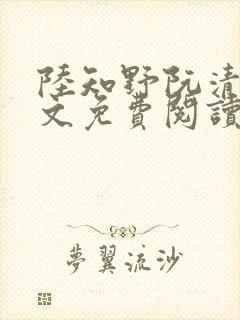 陸知野阮清
文免費閱讀
夢翼流沙